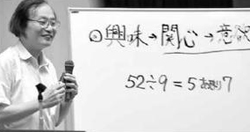 ◎興味→関心→意識
52÷9=5あまり7